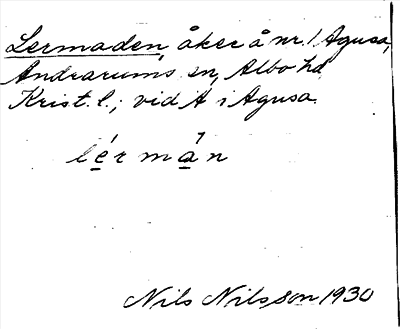 Lermaden, åker å nr. 1 Agusa,
Andrarums sn, Albo hd
Krist. l.; vid Å i Agusa.
lérmàn
Nils Nilsson 1930